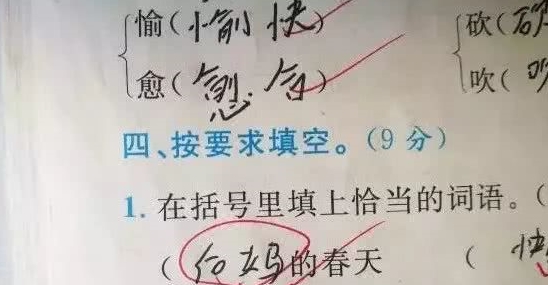 愉(愉快) 砍(砍
愈(愈合) 吹(吹
四、按要求填空。(9 分)
1. 在括号里填上恰当的词语。(
(后妈的春天 (快